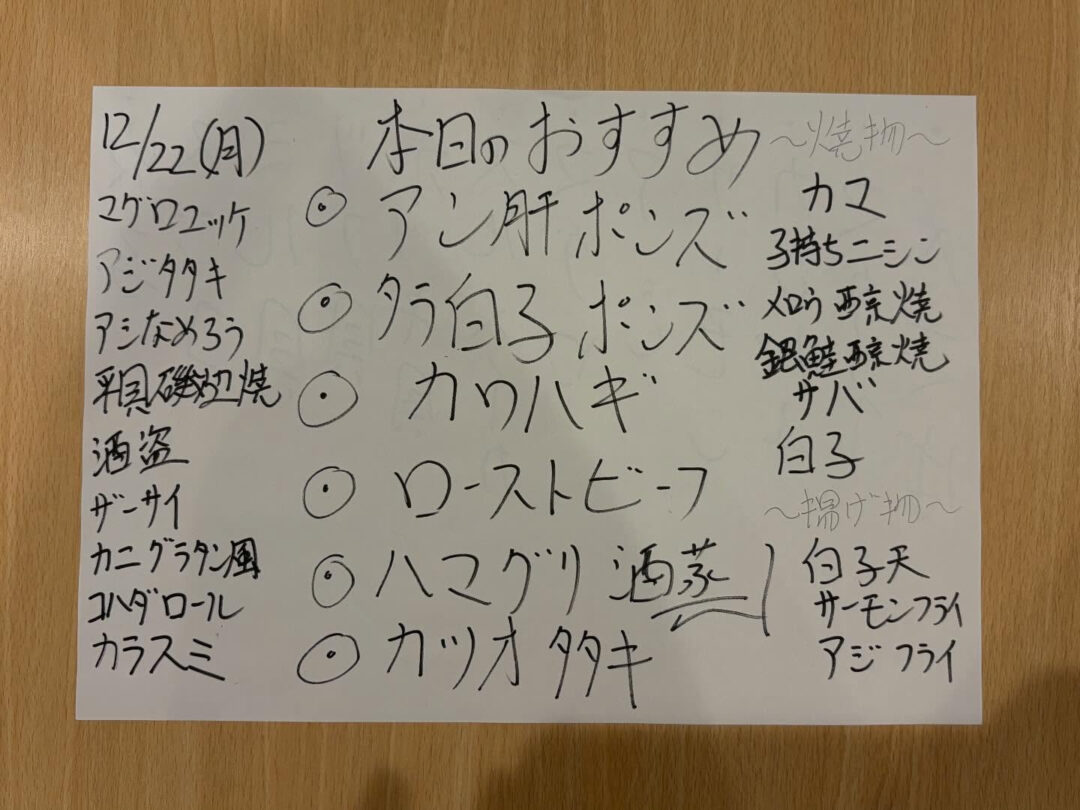 12/22(月)
マグロユッケ
アジタタキ
アジなめろう
平貝磯辺焼
酒盗
ザーサイ
カニグラタン風
コハダロール
カラスミ
本日のおすすめ
◉ アン肝ポンズ
◉ タラ白子ポンズ
◉ カワハギ
◉ ローストビーフ
◉ ハマグリ酒蒸
◉ カツオタタキ
～焼物～
カマ
子持ちニシン
メロウ西京焼
銀鮭西京焼
サバ
白子
～揚げ物～
白子天
サーモンフライ
アジフライ